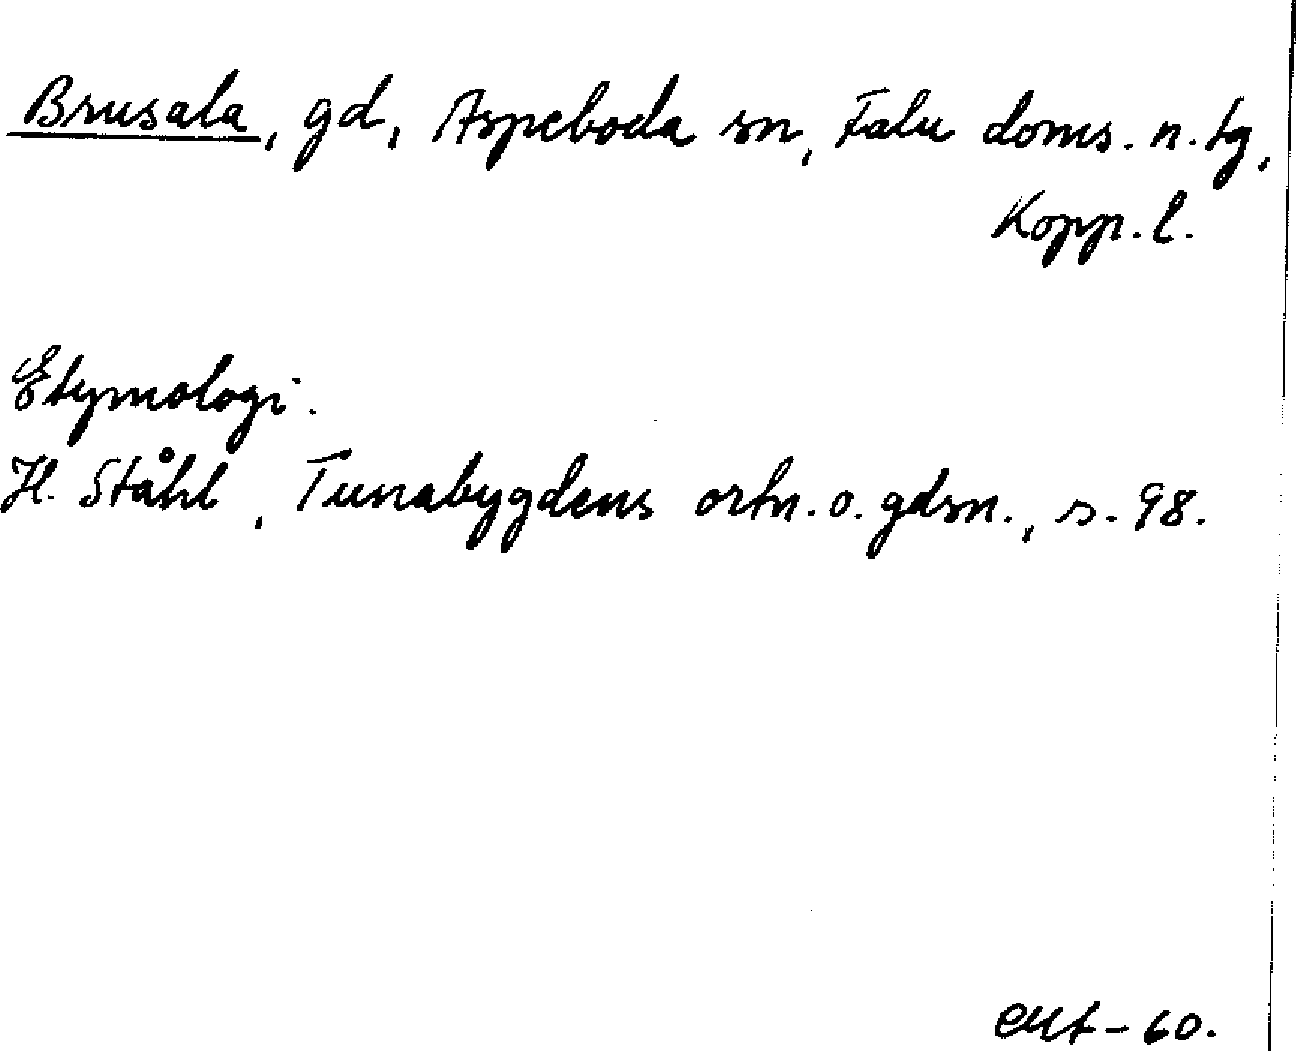 Brusala, gd, Aspeboda sn, Falu doms. n. tg,
Kopp. l.
Etymologi.
H. Ståhl, Tunabygdens ortn. o. gdsn., s. 98.
-60.